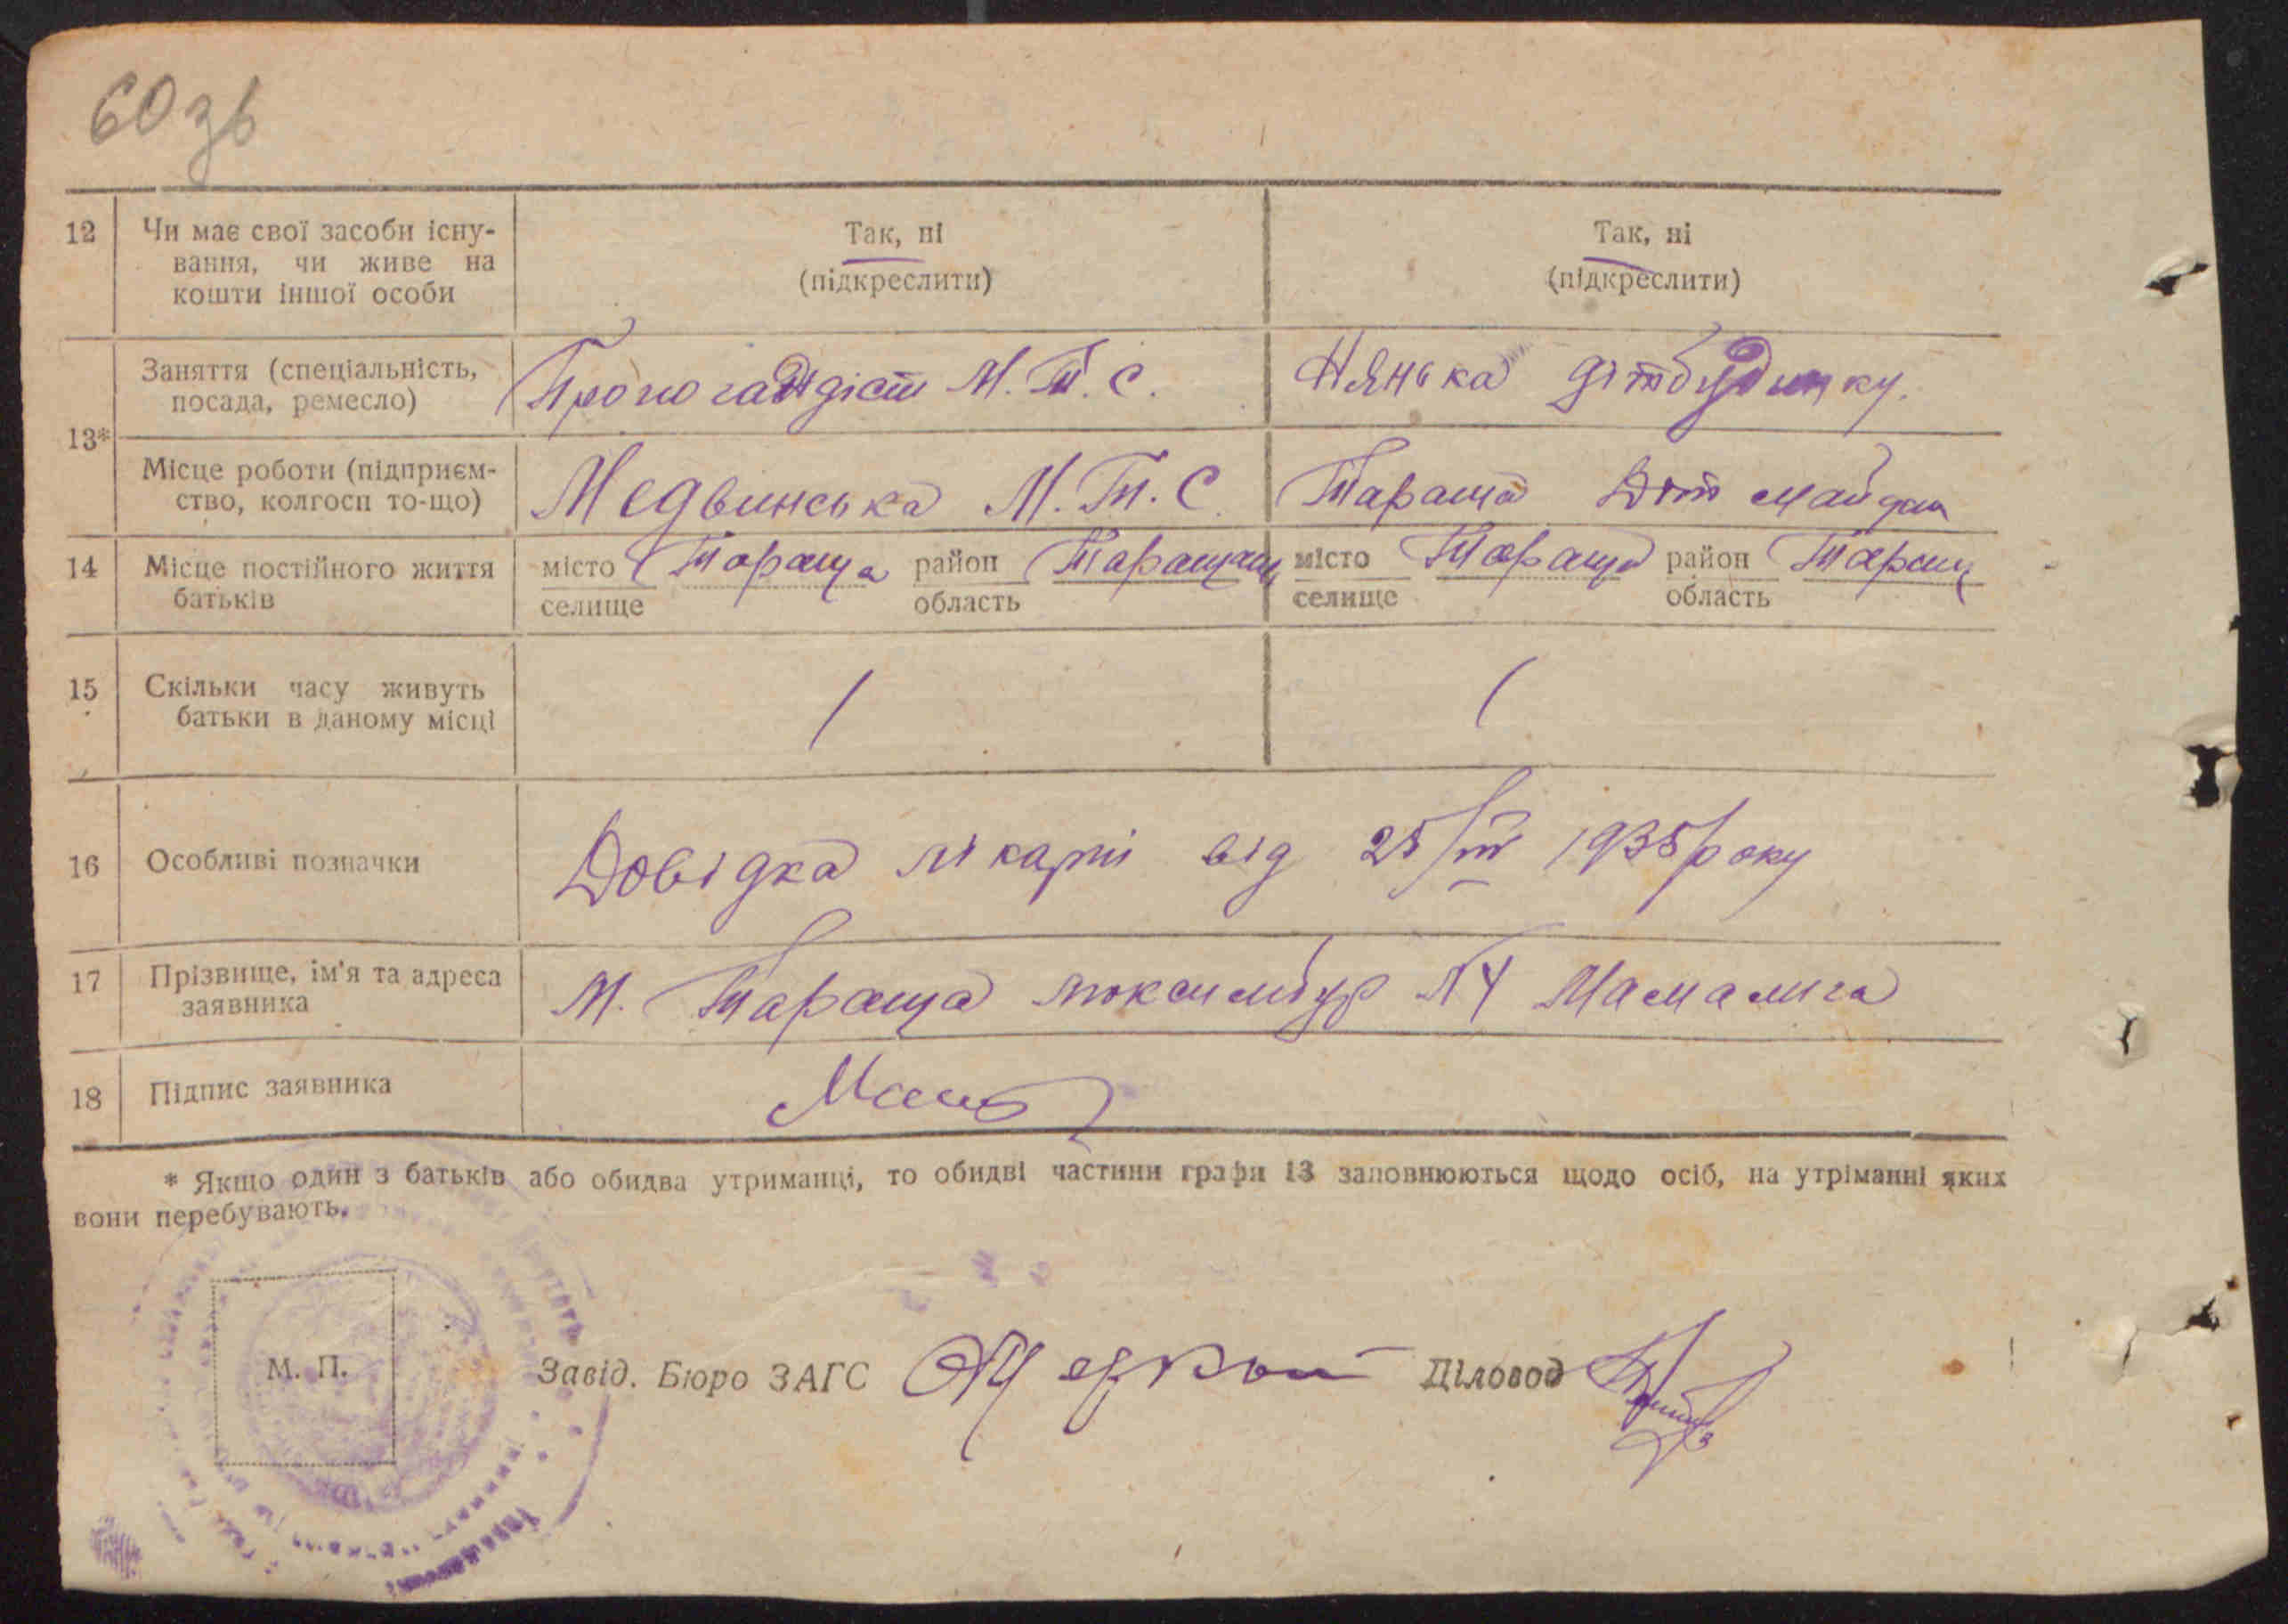 60 зв
12 Чи має свої засоби існу-
вання, чи живе на
кошти іншої особи
Так, ні
(підкреслити)
Так, ні
(підкреслити)
13*
Заняття (спеціальність,
посада, ремесло)
Пропогандіст М.Т.С.
Нянька дітбудинку.
Місце роботи (підприєм-
ство, колгосп то-що)
Медвинська М.Т.С.
Тараща Діт майдан
14 Місце постійного життя
батьків
місто Тараща район Таращан
селище область
місто Тараща район Таращ
селище область
15 Скільки часу живуть
батьки в даному місці
16 Особливі позначки
Довідка лікарні від 25/III 1938 року
17 Прізвище, ім'я та адреса
заявника
М. Тараща Мамалига
18 Підпис заявника
* Якщо один з батьків або обидва утриманці, то обидві частини графи 13 заповнюються щодо осіб, на утріманні яких
вони перебувають.
М. П.
Завід. Бюро ЗАГС
Діловод